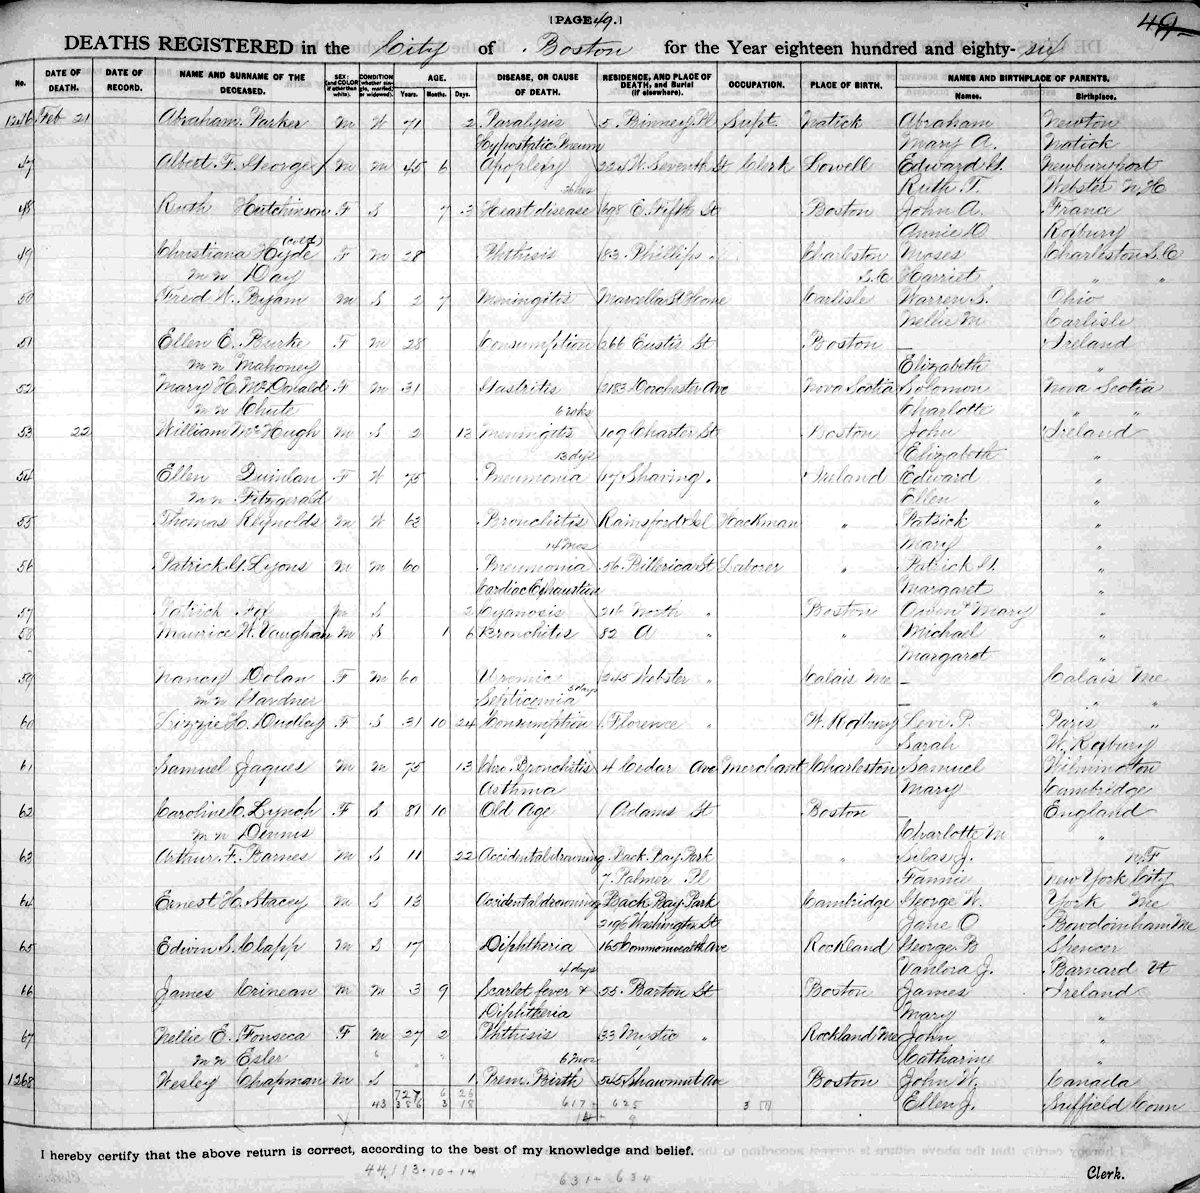 [PAGE 49.]
49
DEATHS REGISTERED in the City of Boston for the Year eighteen hundred and eighty-six
No. DATE OF DEATH. DATE OF RECORD. NAME AND SURNAME OF THE DECEASED. SEX; (and COLOR if other than white). CONDITION whether single, married, or widowed). AGE. Years. Months. Days. DISEASE, OR CAUSE OF DEATH. RESIDENCE, AND PLACE OF DEATH, and Burial (if elsewhere). OCCUPATION. PLACE OF BIRTH. NAMES AND BIRTHPLACE OF PARENTS. Names. Birthplace.
1246 Feb 21 Abraham Parker M W 71 2 Paralysis 5 Binney Pl Supt. Natick Abraham Newton
Hypostatic Pneum Mary A. Natick
47 Albert F. George M M 45 6 Apoplexy 224 W. Seventh St Clerk Lowell Edward G. Newburyport
36 hrs Ruth T. Webster N H
48 Ruth Hutchinson F S 7 3 Heart disease 698 E. Fifth St Boston John A. France
Annie D Roxbury
49 Christiana Hyde (cold) F M 28 Phthisis 83 Phillips " Charleston Moses Charleston S.C
m n Day S.C Harriet " "
50 Fred W. Byam M S 2 7 Meningitis Marcella St Home Carlisle Warren S. Ohio
Nellie M Carlisle
51 Ellen E. Burke F M 28 Consumption 266 Eustis St Boston — Ireland
m n Mahoney Elizabeth "
52 Mary H. McDonald F M 31 Gastritis 2183 Dorchester Ave Nova Scotia Solomon Nova Scotia
m n Chute 6 wks Charlotte " "
53 22 William McHugh M S 2 18 Meningitis 109 Charter St Boston John Ireland
13 dys Elizabeth "
54 Ellen Quinlan F W 75 Pneumonia 17 Sharing " Ireland Edward "
m n Fitzgerald Ellen "
55 Thomas Reynolds M W 62 Bronchitis Rainsford Isl Hackman " Patrick "
14 mos Mary "
56 Patrick G. Lyons M M 60 Pneumonia 56 Billerica St Laborer " Patrick G. "
Cardiac Exhaustion Margaret "
57 Patrick Foy M S 2 Cyanosis 216 North " Boston Owen + Mary "
58 Maurice W. Vaughan M S 1 6 Bronchitis 82 A " " Michael "
Margaret "
59 Nancy Dolan F M 60 Uremic 245 Webster " Calais Me — Calais Me
m n Gardner Septicemia 5 days — " "
60 Lizzie H. Dudley F S 31 10 24 Consumption 1 Florence " W. Roxbury Levi P. Paris "
Sarah W. Roxbury
61 Samuel Jaques M M 75 13 Chro. Bronchitis 4 Cedar Ave Merchant Charleston Samuel Wilmington
Asthma Mary Cambridge
62 Caroline C. Lynch F S 81 10 Old Age 1 Adams St Boston — England
m n Dennis Charlotte M "
63 Arthur F. Barnes M S 11 22 Accidental drowning Back Bay Park " Silas J. — N.F
7 Palmer Pl Fannie New York City
64 Ernest H. Stacey M S 13 Accidental drowning Back Bay Park Cambridge George W. York Me
2196 Washington St Jane O Bowdoinham Me
65 Edwin S. Clapp M S 17 Diphtheria 165 Commonwealth Ave Rockland George B Spencer
4 days Vanlora J. Barnard Vt
66 James Crinean M M 3 9 Scarlet fever + 55 Barton St Boston James Ireland
Diphtheria Mary "
67 Nellie E. Fonseca F M 27 2 Phthisis 33 Mystic " Rockland Me John "
m n Esler 6 mos Catharine "
1268 Wesley Chapman M S 1 Prem. Birth 545 Shawmut Ave Boston John W. Canada
727 6 26 Ellen J. Suffield Conn
43 386 3 18 617 - 625 3
14 - 9
I hereby certify that the above return is correct, according to the best of my knowledge and belief.
44,113+10+14
631+ 634
Clerk.